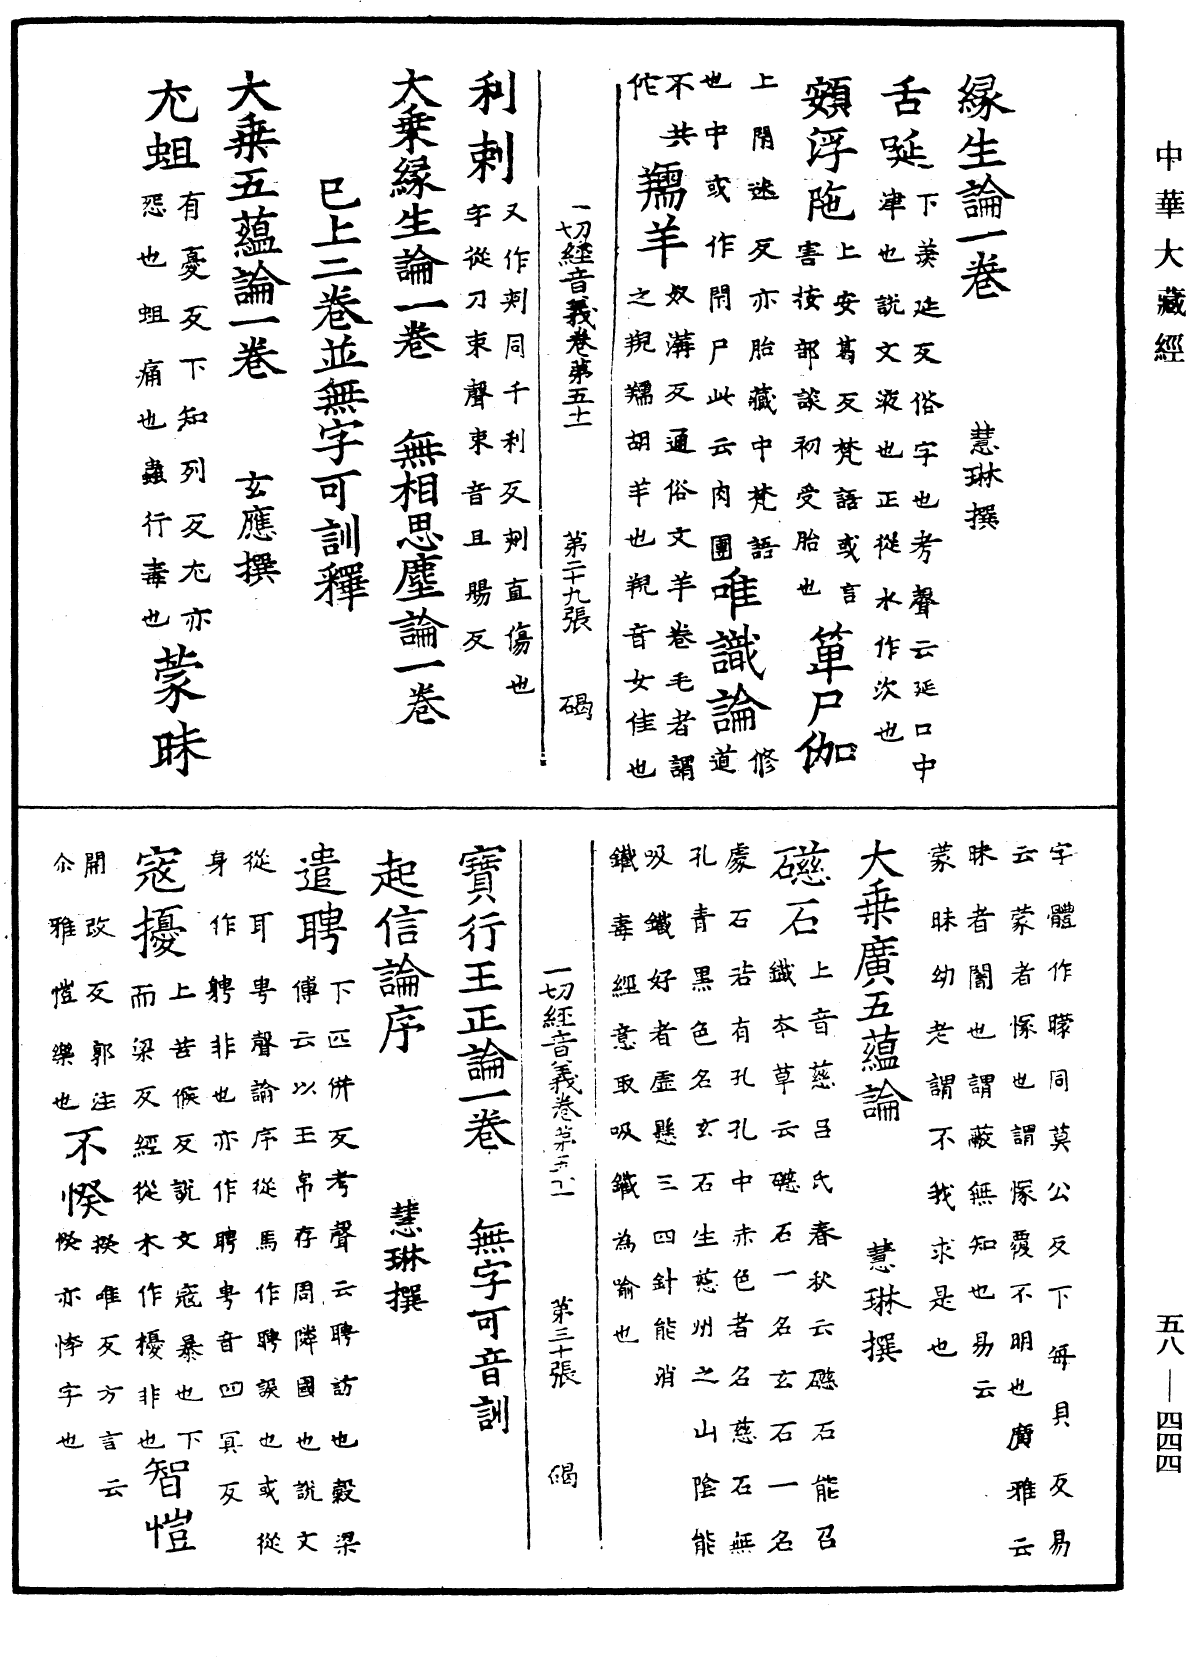 中華大藏經
緣生論一卷　慧琳撰
舌唌下羨延反俗字也考聲云唌口中津也說文液也正從水作㳄也
頞浮陁上安葛反梵語或言害按部談初受胎也箄尸伽
上閇迷反亦胎藏中梵語也中或作閇尸此云肉團唯識論修道
不共作羺羊奴溝反通俗文羊卷毛者謂之䍲羺胡羊也䍲音女佳也
一切經音義卷第五十一　第二十九張　碣
利刺又作刾同千利反刺直傷也字從刀朿聲朿音且賜反
大乘緣生論一卷　無相思塵論一卷
已上二卷並無字可訓釋
大乘五蘊論一卷　玄應撰
尤蛆有憂反下知列反尤亦怨也蛆痛也蟲行毒也蒙昧
字體作矇同莫公反下每貝反易云蒙者懞也謂懞覆不明也廣雅云
昧者闇也謂蔽無知也易云蒙昧幼老謂不我求是也
大乘廣五蘊論　慧琳撰
礠石上音慈呂氏春秋云礠石能召鐵本草云礠石一名玄石一名
處石若有孔孔中赤色者名慈石無孔青黑色名玄石生慈州之山陰能
吸鐵好者虛懸三四針能消鐵毒經意取吸鐵為喻也
一切經音義卷第五十一　第三十張　碣
寶行王正論一卷　無字可音訓
起信論序　慧琳撰
遣聘下匹併反考聲云聘訪也穀梁傳云以玉帛存周隣國也說文
從耳甹聲論序從馬作騁誤也或從身作躬非也亦作聘甹音匹冥反
寇擾上苦候反說文寇暴也下而梁反經從木作櫌非也智愷
開改反郭注尒雅愷樂也不愜揆唯反方言云愜亦悸字也
五八—四四四